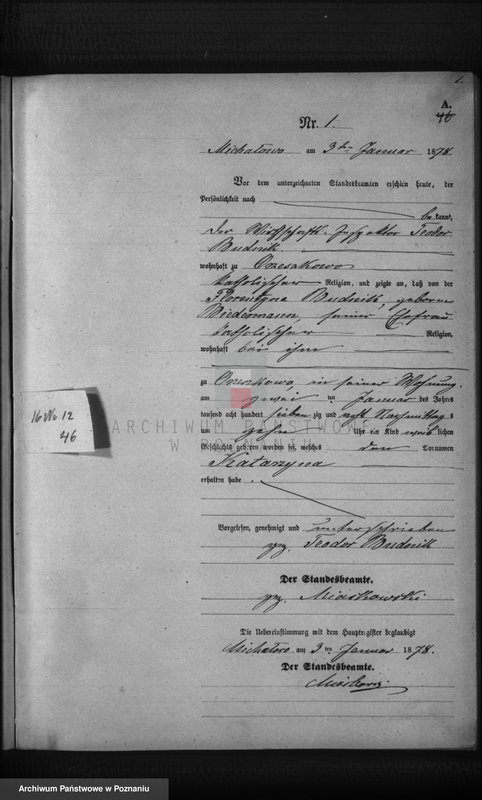 1.
A.
46
Nr. 1.
Michałowo am 3ten Januar 1878
Vor dem unterzeichneten Standesbeamten erschien heute, der
Persönlichkeit nach
be kannt,
der Wirthschafts-Inspektor Teodor
Budnik
wohnhaft zu Orzeszkowo
katholischer Religion, und zeigte an, daß von der
Florentyna Budnik, geborene
Wiedermann, seiner Ehefrau
katholischer Religion,
wohnhaft bei ihm
zu Orzeszkowo, in seiner Wohnung
am zwei ten Januar des Jahres
tausend acht hundert sieben zig und acht Nachmittag s
um zehn Uhr ein Kind weib lichen
Geschlechts geboren worden sei, welches den Vornamen
Katarzyna
erhalten habe.
Vorgelesen, genehmigt und unterschrieben
gez. Teodor Budnik
Der Standesbeamte.
gez. Miaskowski
Die Uebereinstimmung mit dem Hauptregister beglaubigt
Michałowo am 3ten Januar 1878.
Der Standesbeamte.
16 No 12
46
ARCHIWUM PAŃSTWOWE
W POZNANIU
Archiwum Państwowe w Poznaniu